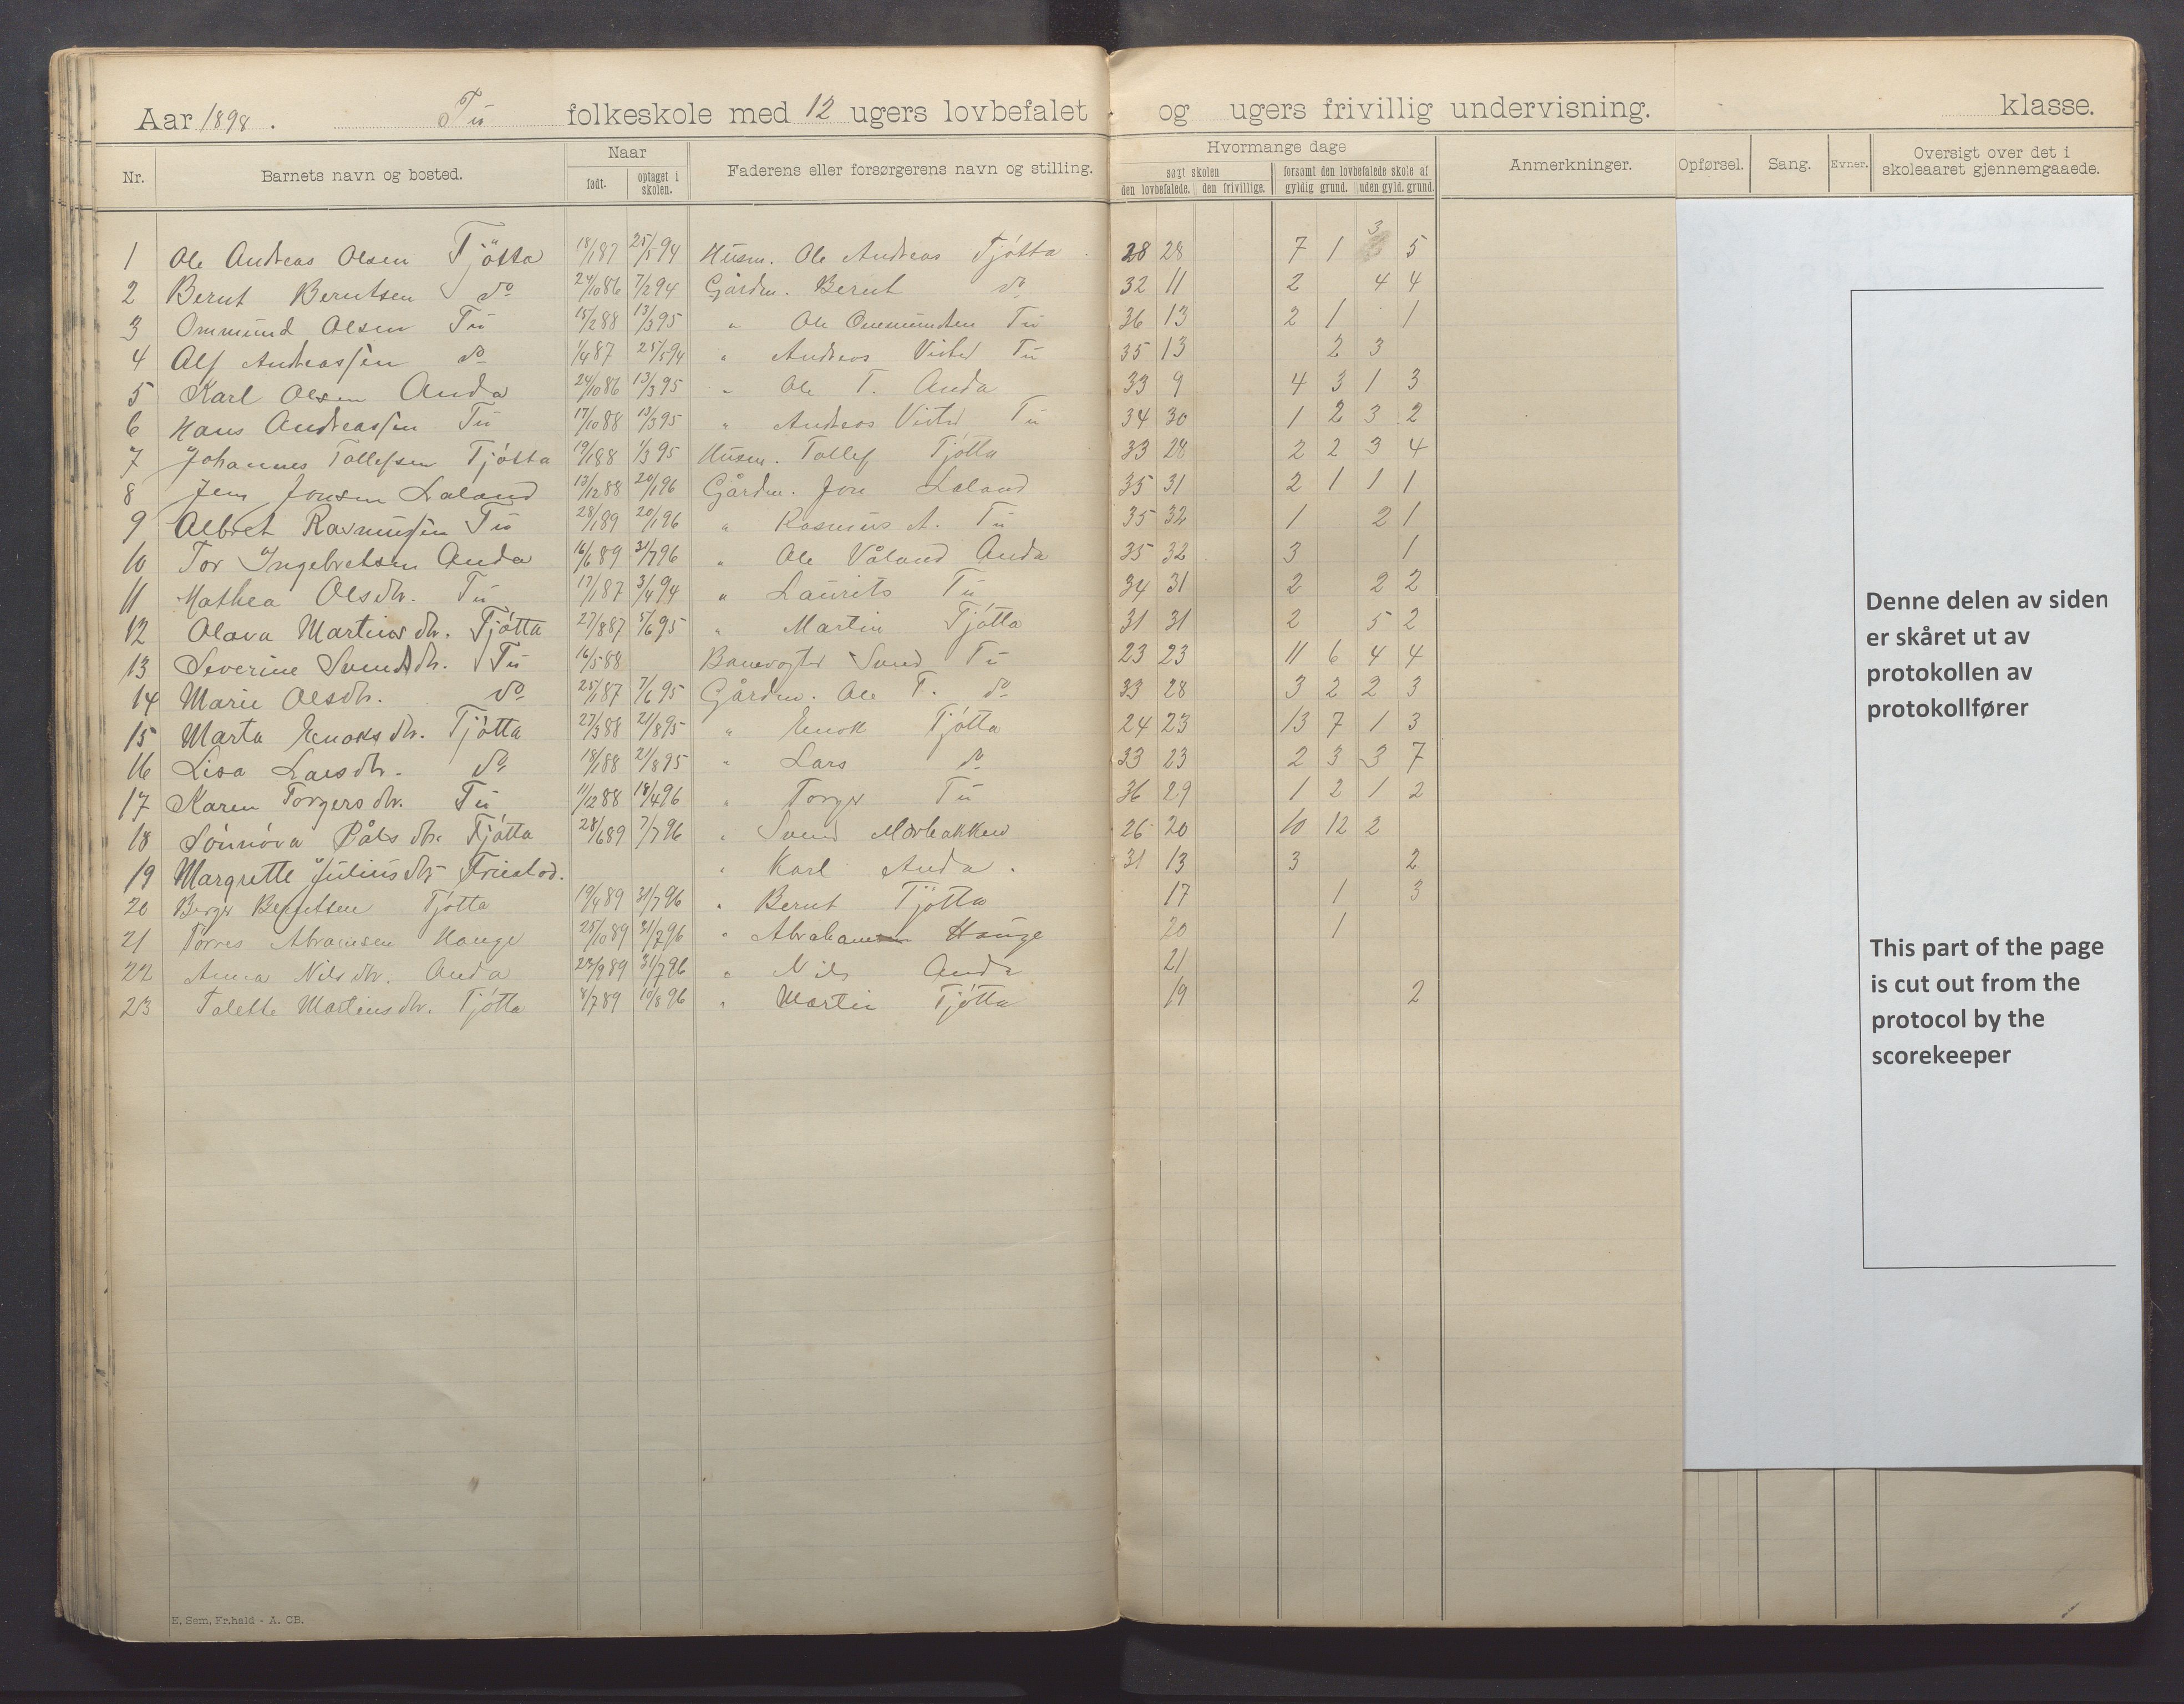 Aar 1898. Tu folkeskole med 12 ugers lovbefalet og ugers frivillig undervisning. klasse.
Nr. Barnets navn og bosted. Naar født. optaget i skolen. Faderens eller forsørgerens navn og stilling. Hvormange dage søgt skolen den lovbefalede. den frivillige. forsømt den lovbefalede skole af gyldig grund. uden gyld. grund. Anmerkninger. Opførsel. Sang. Evner. Oversigt over det i skoleaaret gjennemgaaede.
1 Ole Andreas Olsen Tjøtta 18/1 87 25/5 94 Husm. Ole Andreas Tjøtta 28 28 7 1 3 5
2 Bernt Berntsen do 24/10 86 7/2 94 Gårdm. Bernt do 32 11 2 4 4
3 Ommund Olsen Tu 15/2 88 13/3 95 " Ole Ommundsen Tu 36 13 2 1 1
4 Alf Andreassen do 1/4 87 25/5 94 " Andreas Visted Tu 35 13 2 3
5 Karl Olsen Anda 24/10 86 13/3 95 " Ole T. Anda 33 9 4 3 1 3
6 Hans Andreassen Tu 17/10 88 13/3 95 " Andreas Visted Tu 34 30 1 2 3 2
7 Johannes Tollefsen Tjøtta 19/1 88 1/3 95 Husm. Tollef Tjøtta 33 28 2 2 3 4
8 Jens Jonsen Laland 13/12 88 20/1 96 Gårdm. Jon Laland 35 31 2 1 1 1
9 Albret Rasmussen Tu 28/1 89 20/1 96 " Rasmus A. Tu 35 32 1 2 1
10 Tor Ingebretsen Anda 16/6 89 31/7 96 " Ole Våland Anda 35 32 3 1
11 Mathea Olsdtr. Tu 17/1 87 3/4 94 " Laurits Tu 34 31 2 2 2
12 Olava Martinsdtr. Tjøtta 27/8 87 5/6 95 " Martin Tjøtta 31 31 2 5 2
13 Severine Svendsdtr. Tu 16/5 88 Banevogter Svend Tu 23 23 11 6 4 4
14 Marie Olsdtr. do 25/1 87 7/6 95 Gårdm. Ole T. do 33 28 3 2 2 3
15 Marta Enoksdtr. Tjøtta 27/3 88 21/8 95 " Enok Tjøtta 24 23 13 7 1 3
16 Lisa Larsdtr. do 18/1 88 21/8 95 " Lars do 33 23 2 3 3 7
17 Karen Torgersdtr. Tu 11/12 88 18/4 96 " Torger Tu 36 29 1 2 1 2
18 Sønnøva Pålsdtr. Tjøtta 28/6 89 7/7 96 " Svend 26 20 10 12 2
19 Margrette Juliusdtr. " Karl Anda. 31 13 3 2
20 Berger Berntsen Tjøtta 19/4 89 31/7 96 " Bernt Tjøtta 17 1 3
21 Torres Abramsen Hauge 25/10 89 31/7 96 " Abraham Hauge 20 1
22 Anna Nilsdtr. Anda 23/9 89 31/7 96 " Nils Anda 21
23 Talette Martinsdtr. Tjøtta 8/7 89 10/8 96 " Martin Tjøtta 19 2
Denne delen av siden
er skåret ut av
protokollen av
protokollfører
This part of the page
is cut out from the
protocol by the
scorekeeper
E. Sem, Fr.hald - A. CB.